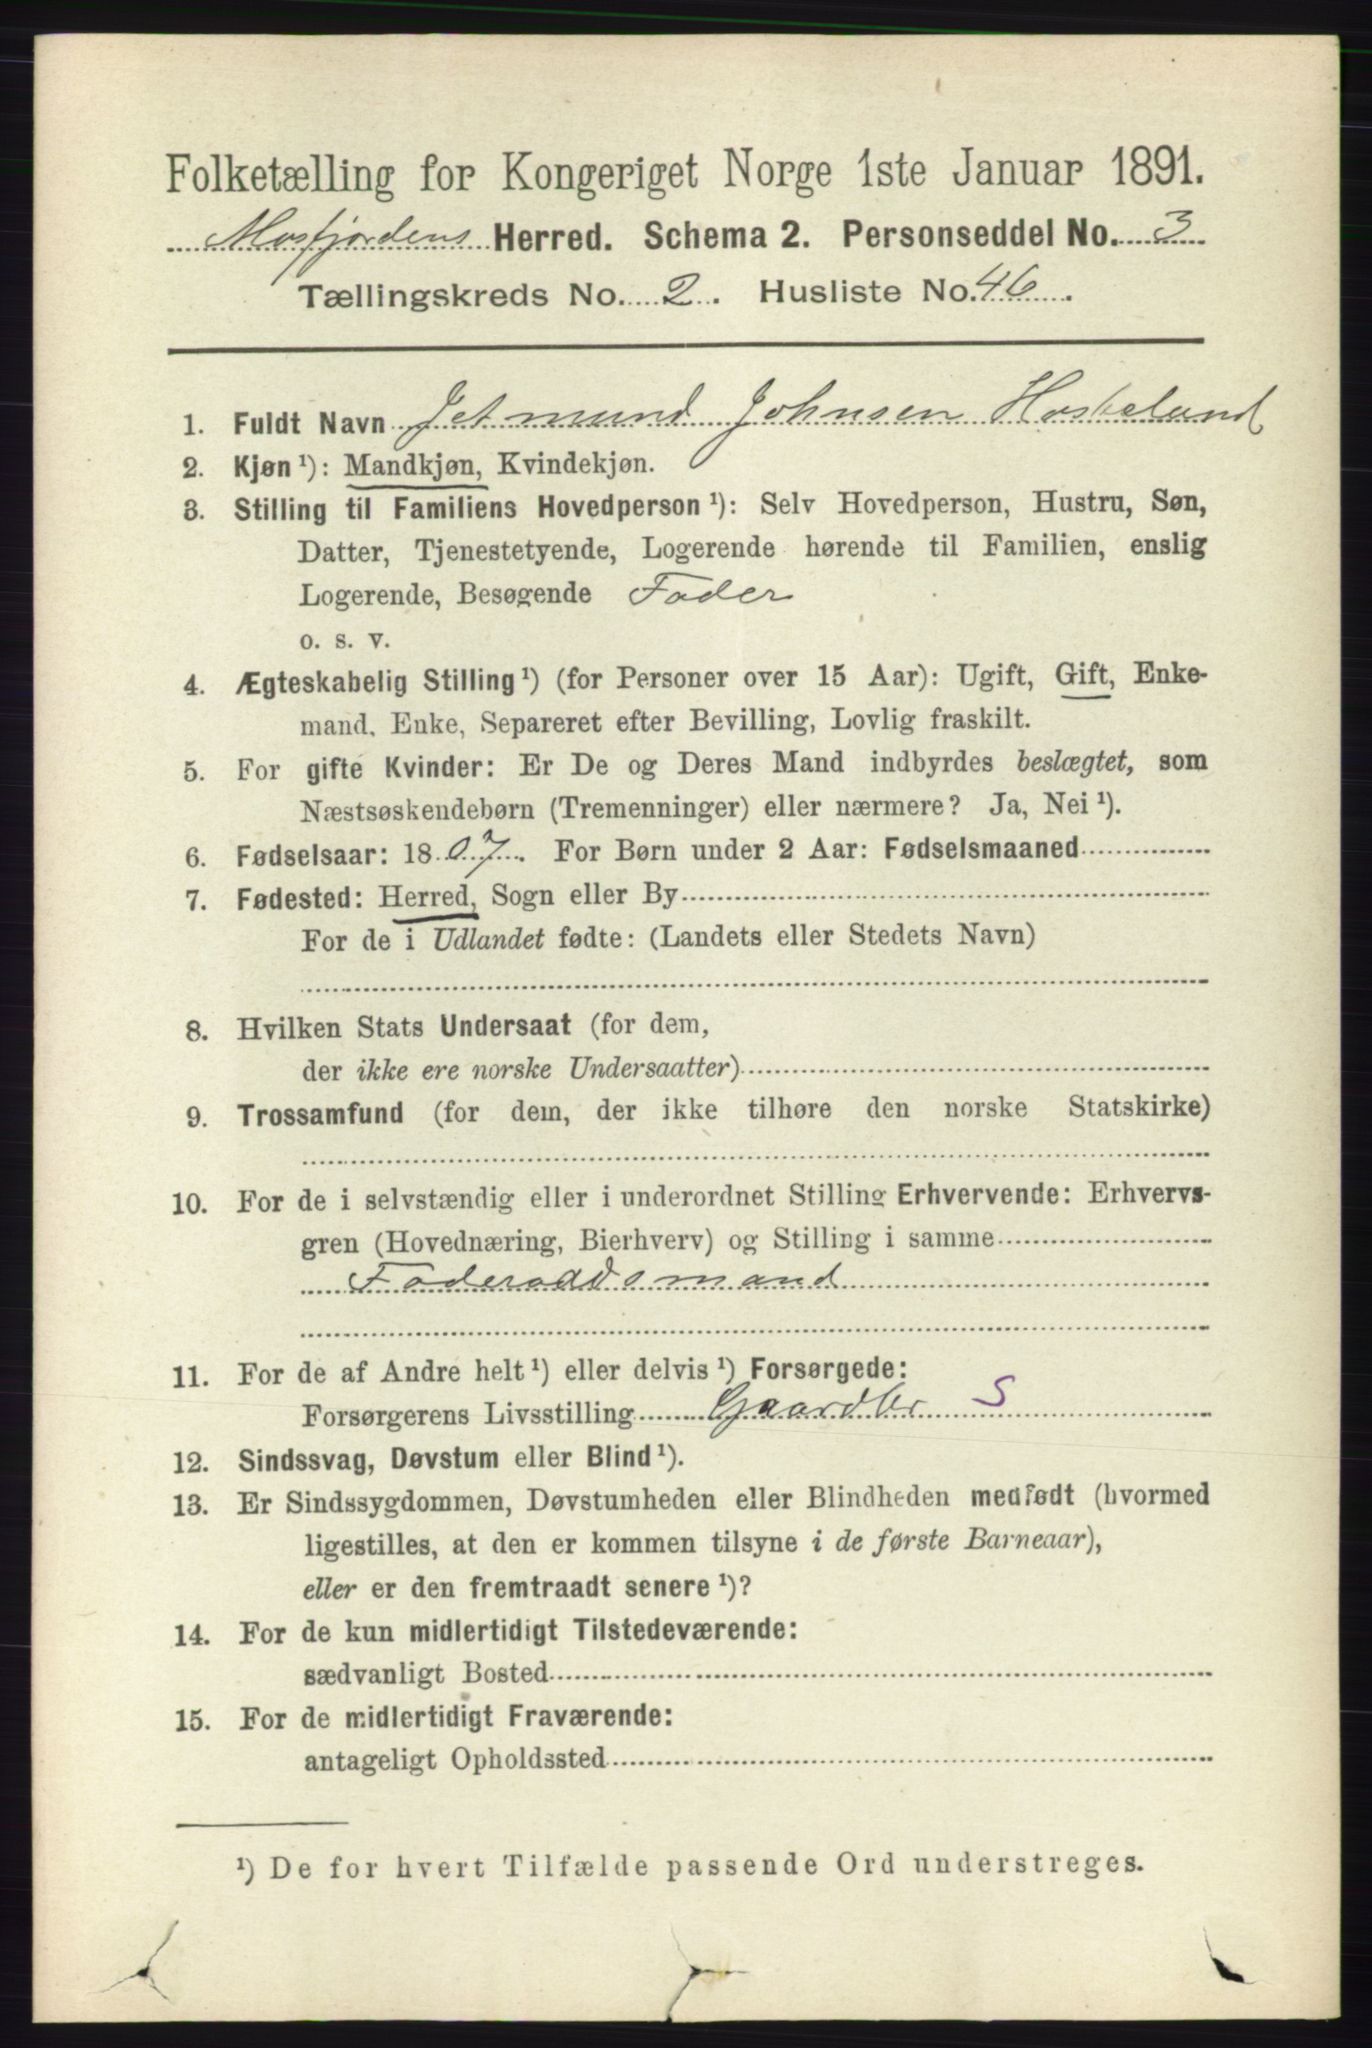 Folketælling for Kongeriget Norge 1ste Januar 1891.
Mosfjordens Herred. Schema 2. Personseddel No. 3
Tællingskreds No. 2. Husliste No. 46.
1. Fuldt Navn Jetmund Johnsen Hosteland
2. Kjøn ¹): Mandkjøn, Kvindekjøn.
3. Stilling til Familiens Hovedperson ¹): Selv Hovedperson, Hustru, Søn,
Datter, Tjenestetyende, Logerende hørende til Familien, enslig
Logerende, Besøgende Fader
o. s. v.
4. Ægteskabelig Stilling ¹) (for Personer over 15 Aar): Ugift, Gift, Enke-
mand, Enke, Separeret efter Bevilling, Lovlig fraskilt.
5. For gifte Kvinder: Er De og Deres Mand indbyrdes beslægtet, som
Næstsøskendebørn (Tremenninger) eller nærmere? Ja, Nei ¹).
6. Fødselsaar: 1807. For Børn under 2 Aar: Fødselsmaaned
7. Fødested: Herred, Sogn eller By
For de i Udlandet fødte: (Landets eller Stedets Navn)
8. Hvilken Stats Undersaat (for dem,
der ikke ere norske Undersaatter)
9. Trossamfund (for dem, der ikke tilhøre den norske Statskirke)
10. For de i selvstændig eller i underordnet Stilling Erhvervende: Erhvervs-
gren (Hovednæring, Bierhverv) og Stilling i samme
Føderaadsmand
11. For de af Andre helt ¹) eller delvis ¹) Forsørgede:
Forsørgerens Livsstilling Gaardbr S
12. Sindssvag, Døvstum eller Blind ¹).
13. Er Sindssygdommen, Døvstumheden eller Blindheden medfødt (hvormed
ligestilles, at den er kommen tilsyne i de første Barneaar),
eller er den fremtraadt senere ¹)?
14. For de kun midlertidigt Tilstedeværende:
sædvanligt Bosted
15. For de midlertidigt Fraværende:
antageligt Opholdssted
¹) De for hvert Tilfælde passende Ord understreges.